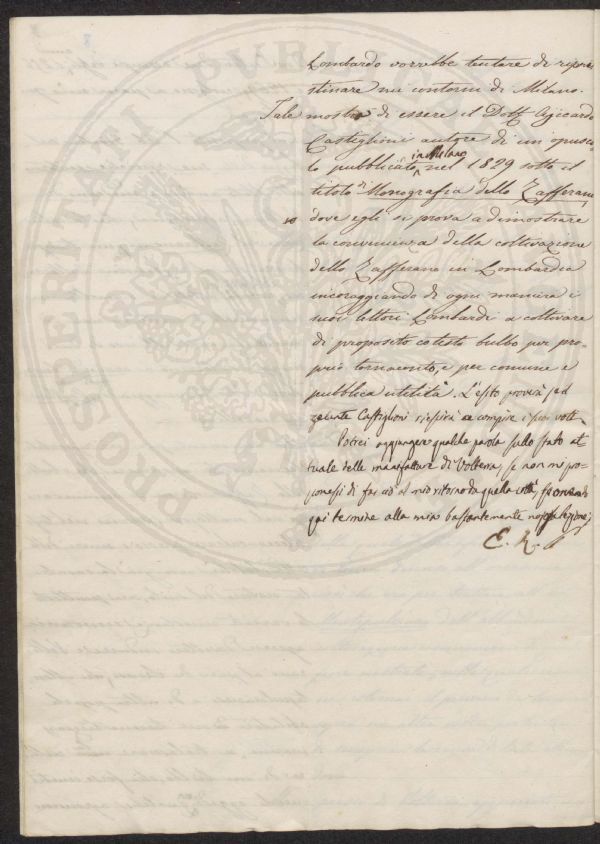 Lombardo vorrebbe tentare di ripri-
stinare nei contorni di Milano.
Tale mostrò di essere il Dott.
Castiglioni autore di un opusco-
lo pubblicato in Milano nel 1829 sotto il
titolo di Monografia dello Zafferano,
dove egli si prova a dimostrare
la convenienza della coltivazione
dello Zafferano in Lombardia
incoraggiando di ogni maniera i
suoi lettori Lombardi a coltivare
di proposito cotesto bulbo per pro-
prio tornaconto, e per comune e
pubblica utilità. L'esito proverà se il
zelante Castiglioni riescirà a compire i suoi voti.
Potrei aggiungere qualche parola sullo stato at-
tuale delle manifatture di Volterra, se non mi pro-
ponessi di far ciò al mio ritorno da quella città,
qui termine alla mia bastantemente nojosa lezione.
E. R.
PROSPERITATI PUBLICAE